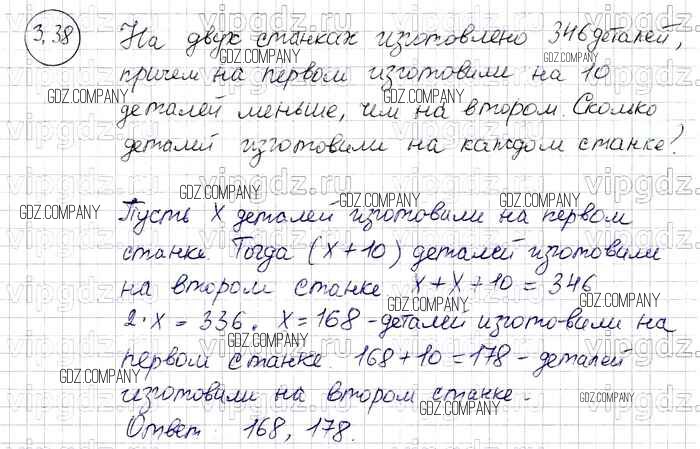 3.38 На двух станках изготовлено 346 деталей,
причем на первом изготовили на 10
деталей меньше, чем на втором. Сколко
деталей изготовили на каждом станке?
Пусть x деталей изготовили на первом
станке. Тогда (x+10) деталей изготовили
на втором станке x+x+10=346
2·x=336. x=168-деталей изготовили на
первом станке. 168+10=178-деталей
изготовили на втором станке.
Ответ 168, 178.